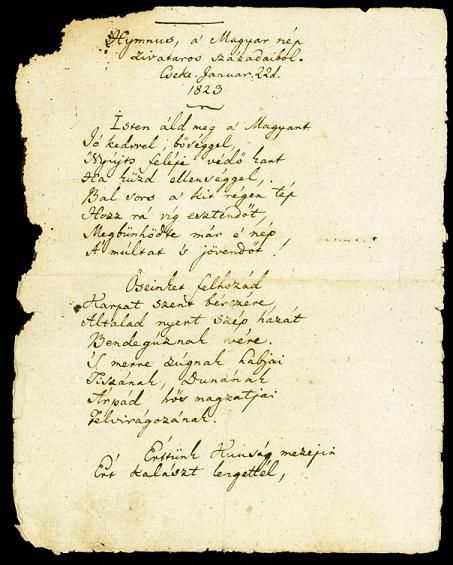 Hymnus, a' Magyar nép
zivataros századaiból.
Cseke. Januar. 22d.
1823
Isten áld meg a' Magyart
Jó kedvvel, bőséggel,
Nyújts feléje védő kart
Ha küzd ellenséggel,
Bal sors a' kit régen tép
Hozz rá víg esztendőt,
Megbűnhödte már e' nép
A' múltat 's jövendőt!
Őseinket felhozád
Kárpát szent bérczére,
Általad nyert szép hazát
Bendegúznak vére.
'S merre zúgnak habjai
Tiszának, Dunának
Árpád hős magzatjai
Felvirágozának.
Érttünk Kunság mezején
Ért kalászt lengettél,